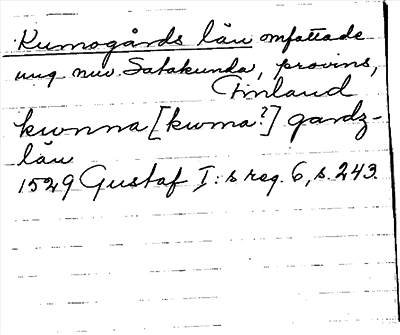 Kumogårds län omfattade
ung nuv. Satakunda, provins,
Finland
kwnna [kwma?] gardz-
län
1529 Gustaf I:s reg. 6, s. 243.